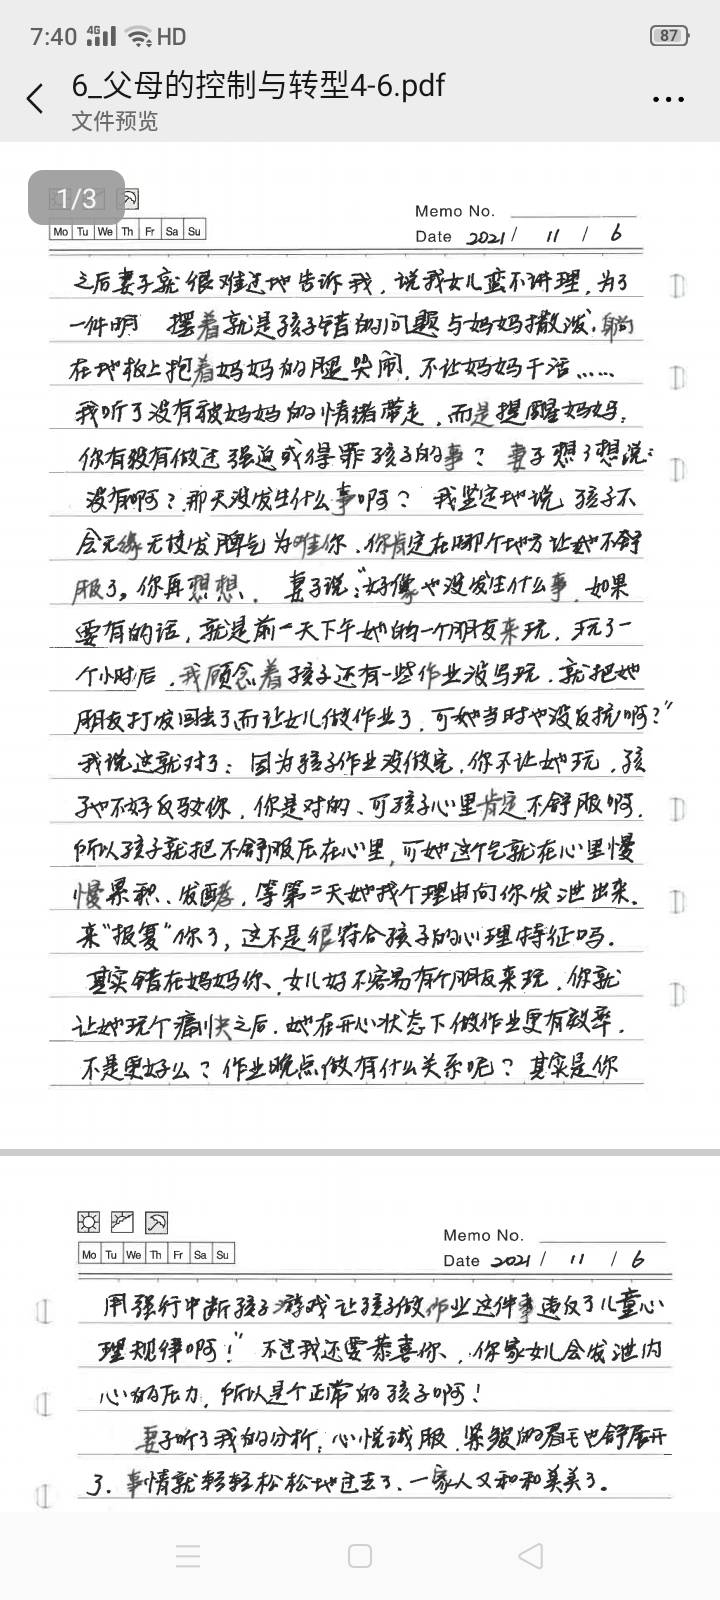 7:40 4G HD 87
6_父母的控制与转型4-6.pdf
文件预览
1/3
Memo No.
Mo Tu We Th Fr Sa Su
Date 2021 / 11 / 6
之后妻子就很难过地告诉我，说我女儿蛮不讲理，为了
一件明 摆着就是孩子错的问题与妈妈撒泼，躺
在地板上抱着妈妈的腿哭闹，不让妈妈干活……
我听了没有被妈妈的情绪带走，而是提醒妈妈：
你有没有做过强迫或得罪孩子的事？ 妻子想了想说：
没有啊？那天没发生什么事啊？ 我坚定地说 孩子不
会无缘无故发脾气为难你、你肯定在哪个地方让她不舒
服了。你再想想、 妻子说："好像也没发生什么事，如果
要有的话，就是前一天下午她的一个朋友来玩，玩了一
个小时后，我顾念着孩子还有一些作业没写玩，就把她
朋友打发回去了而让女儿做作业了，可她当时也没反抗啊？"
我说这就对了：因为孩子作业没做完，你不让她玩，孩
子也不好反驳你，你是对的、可孩子心里肯定不舒服啊，
所以孩子就把不舒服压在心里，可她这个气就在心里慢
慢累积、发酵，等第二天她找个理由向你发泄出来，
来"报复"你了，这不是很符合孩子的心理特征吗．
其实错在妈妈你、女儿好不容易有个朋友来玩，你就
让她玩个痛快之后，她在开心状态下做作业更有效率，
不是更好么？作业晚点做有什么关系呢？ 其实是你
Memo No.
Mo Tu We Th Fr Sa Su
Date 2021 / 11 / 6
用强行中断孩子游戏让孩子做作业这件事违反了儿童心
理规律啊！" 不过我还要恭喜你、，你家女儿会发泄内
心的压力，所以是个正常的孩子啊！
妻子听了我的分析，心悦诚服，紧皱的眉毛也舒展开
了．事情就轻轻松松地过去了、一家人又和和美美了。